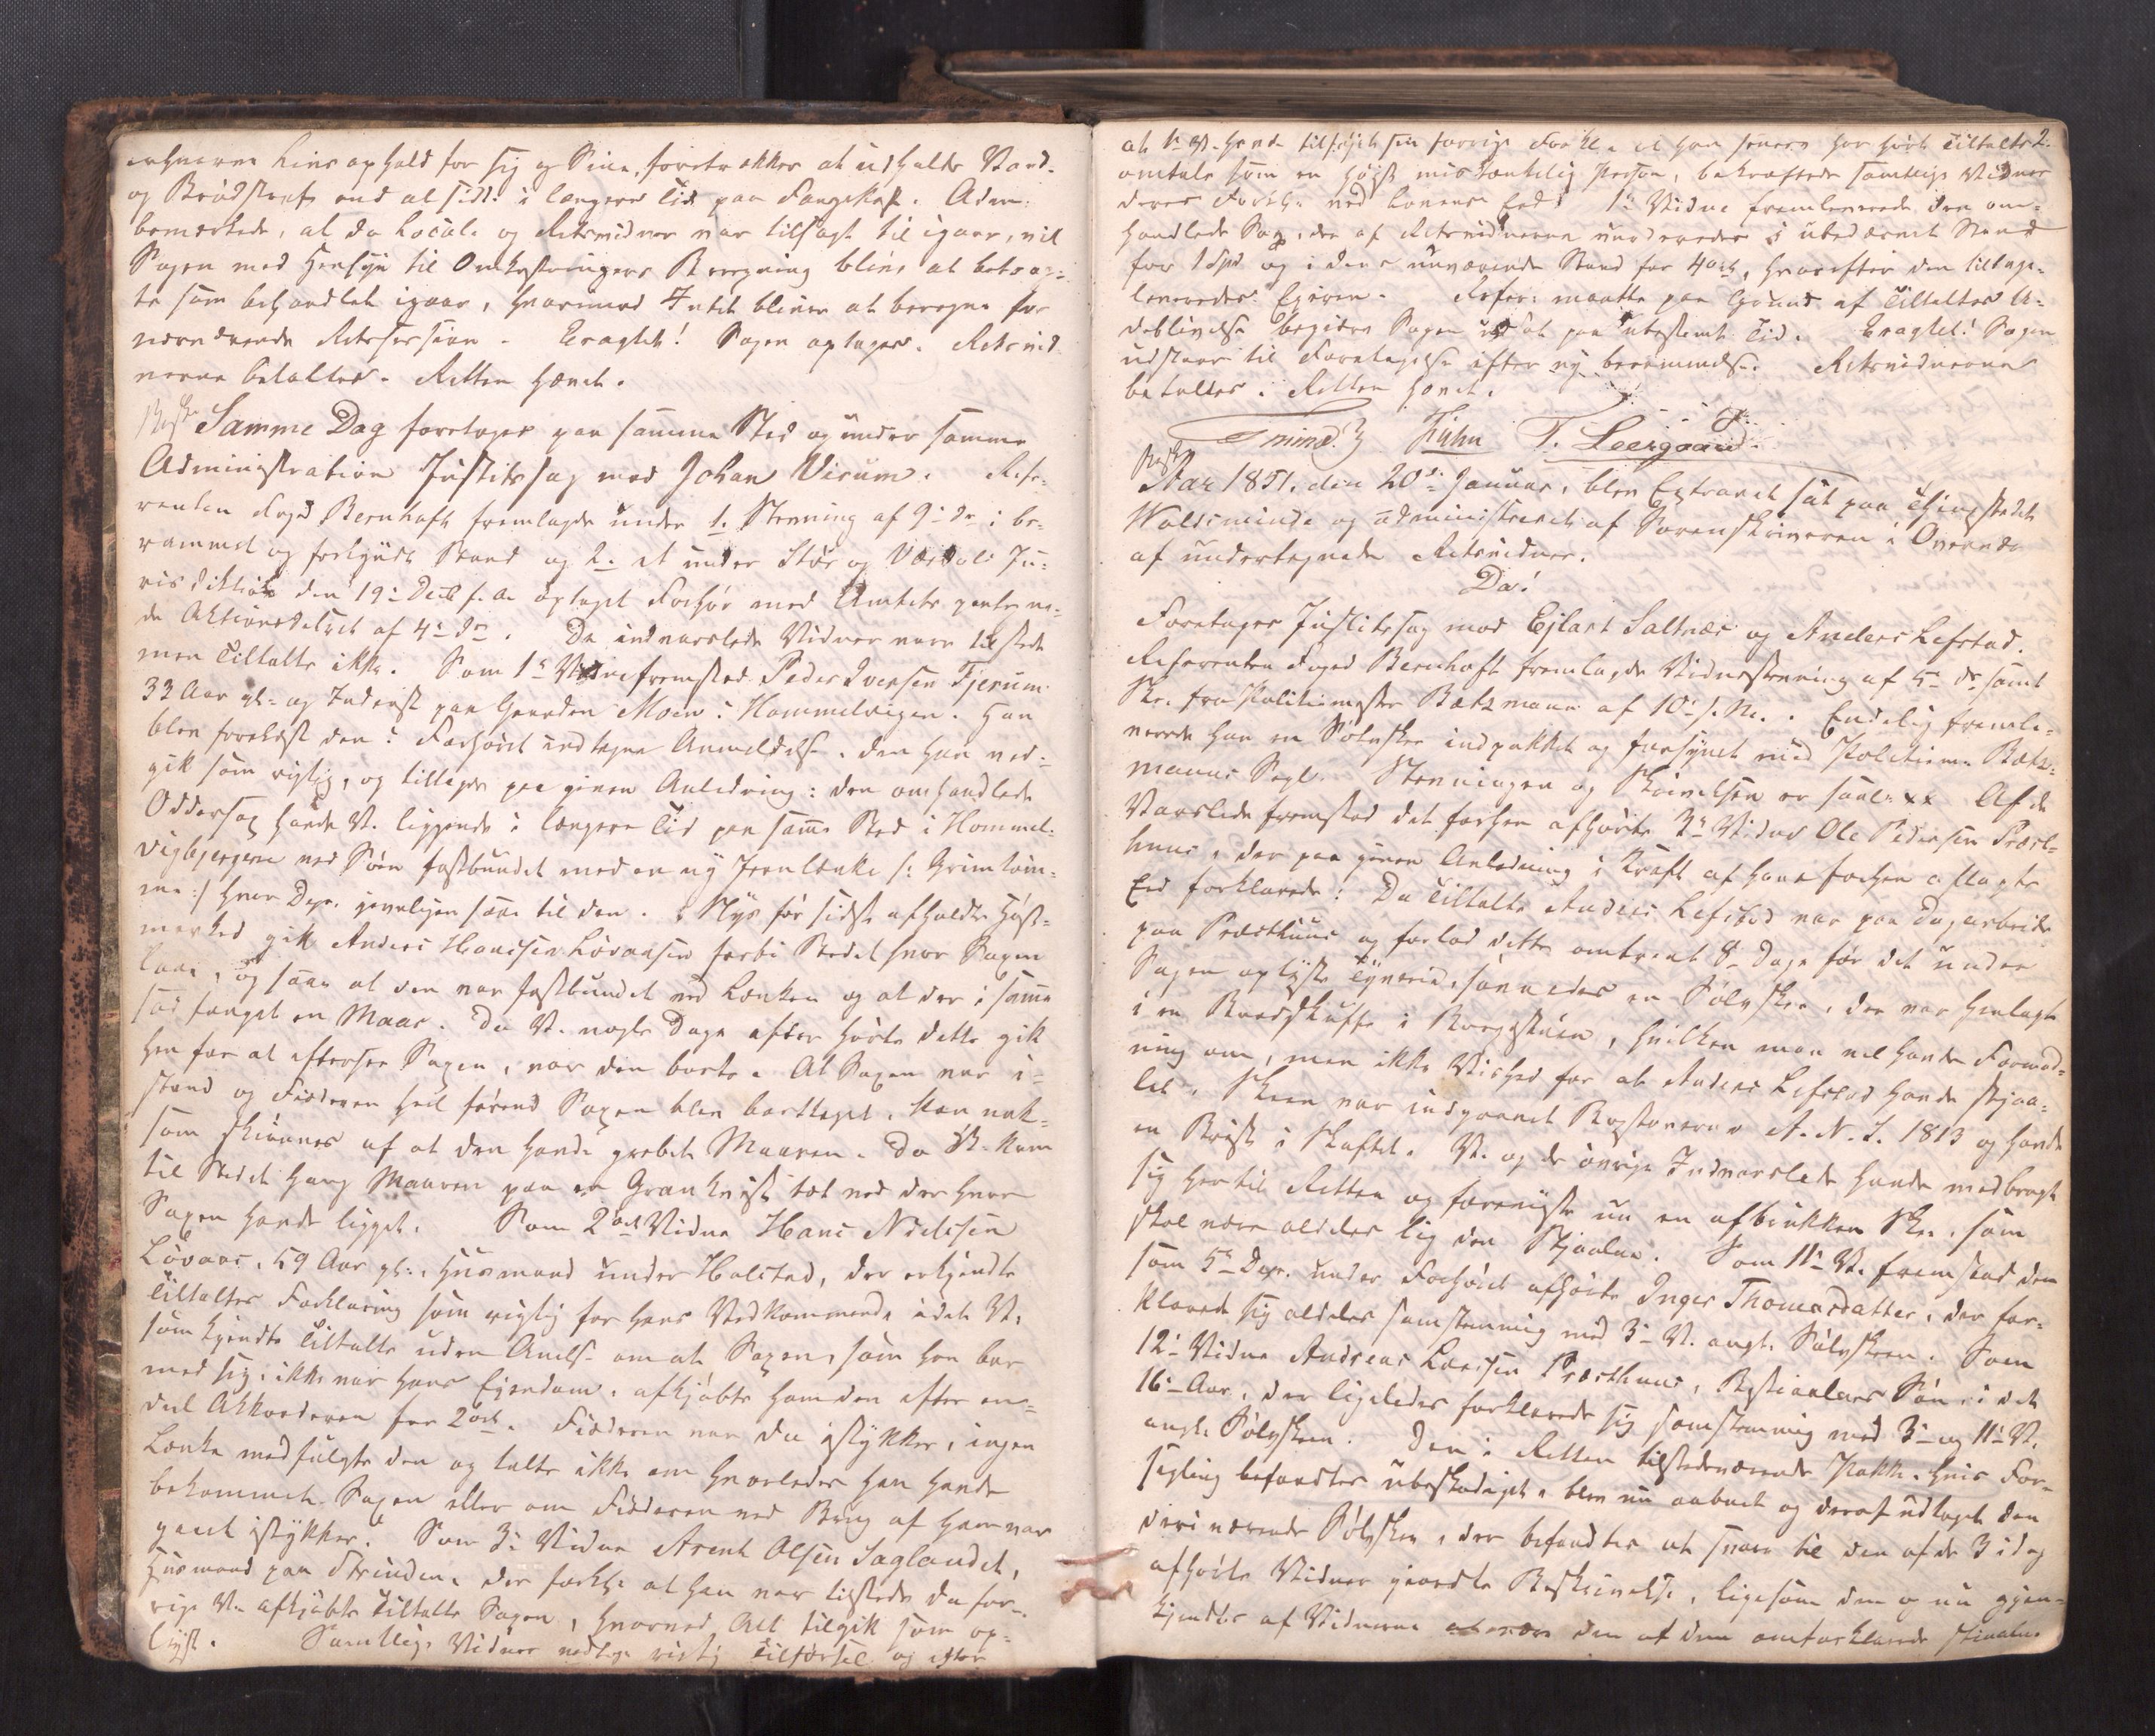 erhverve Livsophold for sig og Sine, foretrækker at udholde Vand-
og Brødstraf end at sidde i længere Tid paa Fangekost. Adm.
bemærkede, at da Locale og Retsvidner var tilsagt til igaar, vil
Sagen med Hensyn til Omkostningers Beregning blive at betrag-
te som behandlet igaar, hvorimod Intet bliver at beregne for
nærværende Retssession. Eragtet! Sagen optages. Retsvid-
nerne betaltes. Retten hævet.
Samme Dag foretoges paa samme Sted og under samme
Administration Justitssag mod Johan Virum. Refe-
renten Foged Bernhoft fremlagde under 1. Stevning af 9de ds i be-
rammet og forkyndt Stand og 2. et under Stør og Værdals Ju-
risdiktion den 19de Decb f. A. optaget Forhør med Amtets paateg-
de Aktionsdekret af 4de ds. De indvarslede Vidner vare tilstede
men Tiltalte ikke. Som 1ste Vidne fremstod Peder Iversen Fjerum
33 Aar gl. og Inderst paa Gaarden Moen i Hommelvigen. Han
blev forelæst den i Forhøret indtagne Anmeldelse, den han ved-
gik som rigtig, og tillagde paa given Anledning: den omhandlede
Oddersax havde V. liggende i længere Tid paa samme Sted i Hommel-
vigbjergene ved Søen fastbundet med en ny Jernlænke /: Grimtøm-
me :/ hver Dep. jevnligen saae til den. Nys før sidst afholdte Høst-
marked gik Anders Hansen Løvaasen forbi Stedet hvor Saxen
laae, og saae at den var fastbundet ved Lænken og at der i samme
sad fanget en Maar. Da V. nogle Dage efter hørte dette gik
hen for at efterse Saxen, var den borte. At Saxen var i
stand og Fjæderen heel førend Saxen blev borttaget, kan nok-
som skjønnes af at den havde grebet Maaren. Da V. kom
til Stedet hang Maaren paa en Grankvist tæt ved der hvor
Saxen havde ligget. Som 2det Vidne Hans Nielsen
Løvaas, 59 Aar gl. Husmand under Halstad, der erkjendte
Tiltaltes Forklaring som rigtig for hans Vedkommende idet V.
som kjendte Tiltalte uden Anelse om at Saxen, som han bar
med sig, ikke var hans Eiendom, afkjøbte ham den efter en-
deel Akkorderen for 2 ort. Fjæderen var da istykker, ingen
Lænke medfulgte den og talte ikke om hvorledes han havde
bekommet Saxen eller om Fjæderen ved Brug af ham var
gaaet istykker. Som 3de Vidne Arent Olsen Saglandet,
Husmand paa Strinden, der forkl. at han var tilstede da for-
rige V. afkjøbte Tiltalte Saxen, hvorved Alt tilgik som op-
lyst. Samtlige Vidner vedtoge rigtig Tilførsel og efter
2.
at 1ste V. havde tilføiet sin forrige Forkl. at han senere har hørt Tiltalte
omtale som en høist mistænkelig Person, bekræftede samtlige Vidner
deres Forkl. med Lovens Eed. 1ste Vidne fremleverede den om-
handlede Sax, der af Retsvidnerne vurderedes i ubedærvet Stand
for 1 Spd og i dens nuværende Stand for 4 ort, hvorefter den tilbage-
leveredes Eieren. Refer. maatte paa Grund af Tiltaltes U-
deblivelse begjære Sagen udsat paa ubestemt Tid. Eragtet! Sagen
udstaaer til Foretagelse efter ny berammelse. Retsvidnerne
betaltes. Retten hævet.
Kühn T. Leergaard.
Aar 1851. den 20de Januar, blev Extraret sat paa Thingstedet
Woldsminde og administreret af Sorenskriveren i Overvær
af undertegnede Retsvidner.
Da!
Foretages Justitssag mod Ejlart Saltnæs og Anders Lefstad.
Referenten Foged Bernhoft fremlagde Vidnestevning af 5te ds samt
Skr. fra Politiemester Bætzmann af 10de s. M. Endelig fremle-
verede han en Sølvskee indpakket og forsynet med Politiem. Bætz-
manns Segl. Stevningen og Skrivelsen er saal. xx Af de
Varslede fremstod det forhen afhørte 3de Vidne Ole Pedersen Præst-
huus, der paa given Anledning i Kraft af hans forhen aflagte
Eed forklarede: Da Tiltalte Anders Lefstad var paa Dagarbeide
paa Præsthuus og forlod dette omtrent 8te Dage før det under
Sagen oplyste Tyverie, savnedes en Sølvskee, der var henlagt
i en Bordskuffe i Borgestuen, hvilken man vel havde Formod-
ning om, men ikke Vished for at Anders Lefstad havde stjaa-
let. Skeen var indgravet Bogstaverne A. N. S. 1813 og havde
en Brøst i Skaftet. V. og de øvrige Indvarslede havde medbragt
sig hertil Retten og foreviste nu en afbrukken Skee, som
skal være aldeles lig den Stjaalne. Som 11te V. fremstod den
som 5te Dep. under Forhøret afhørte Inger Thomasdatter, der for-
klarede sig aldeles samstemmig med 3de V. angl. Sølvskeen. Som
12te Vidne Andreas Larsen Præsthuus, Bestiaalnes Søn, i det
16de Aar, der ligeledes forklarede sig samstemmig med 3de og 11te V.
angl. Sølvskeen. Den i Retten tilstedeværende Pakke, hvis For-
segling befandtes ubeskadiget, blev nu aabnet og deraf udtaget den
deri værende Sølvskee, der befandtes at svare til den af de 3 idag
afhørte Vidner gjorte Beskrivelse, ligesom den og nu gjen-
kjendtes af Vidnerne at være den af dem omforklarede stjaalne